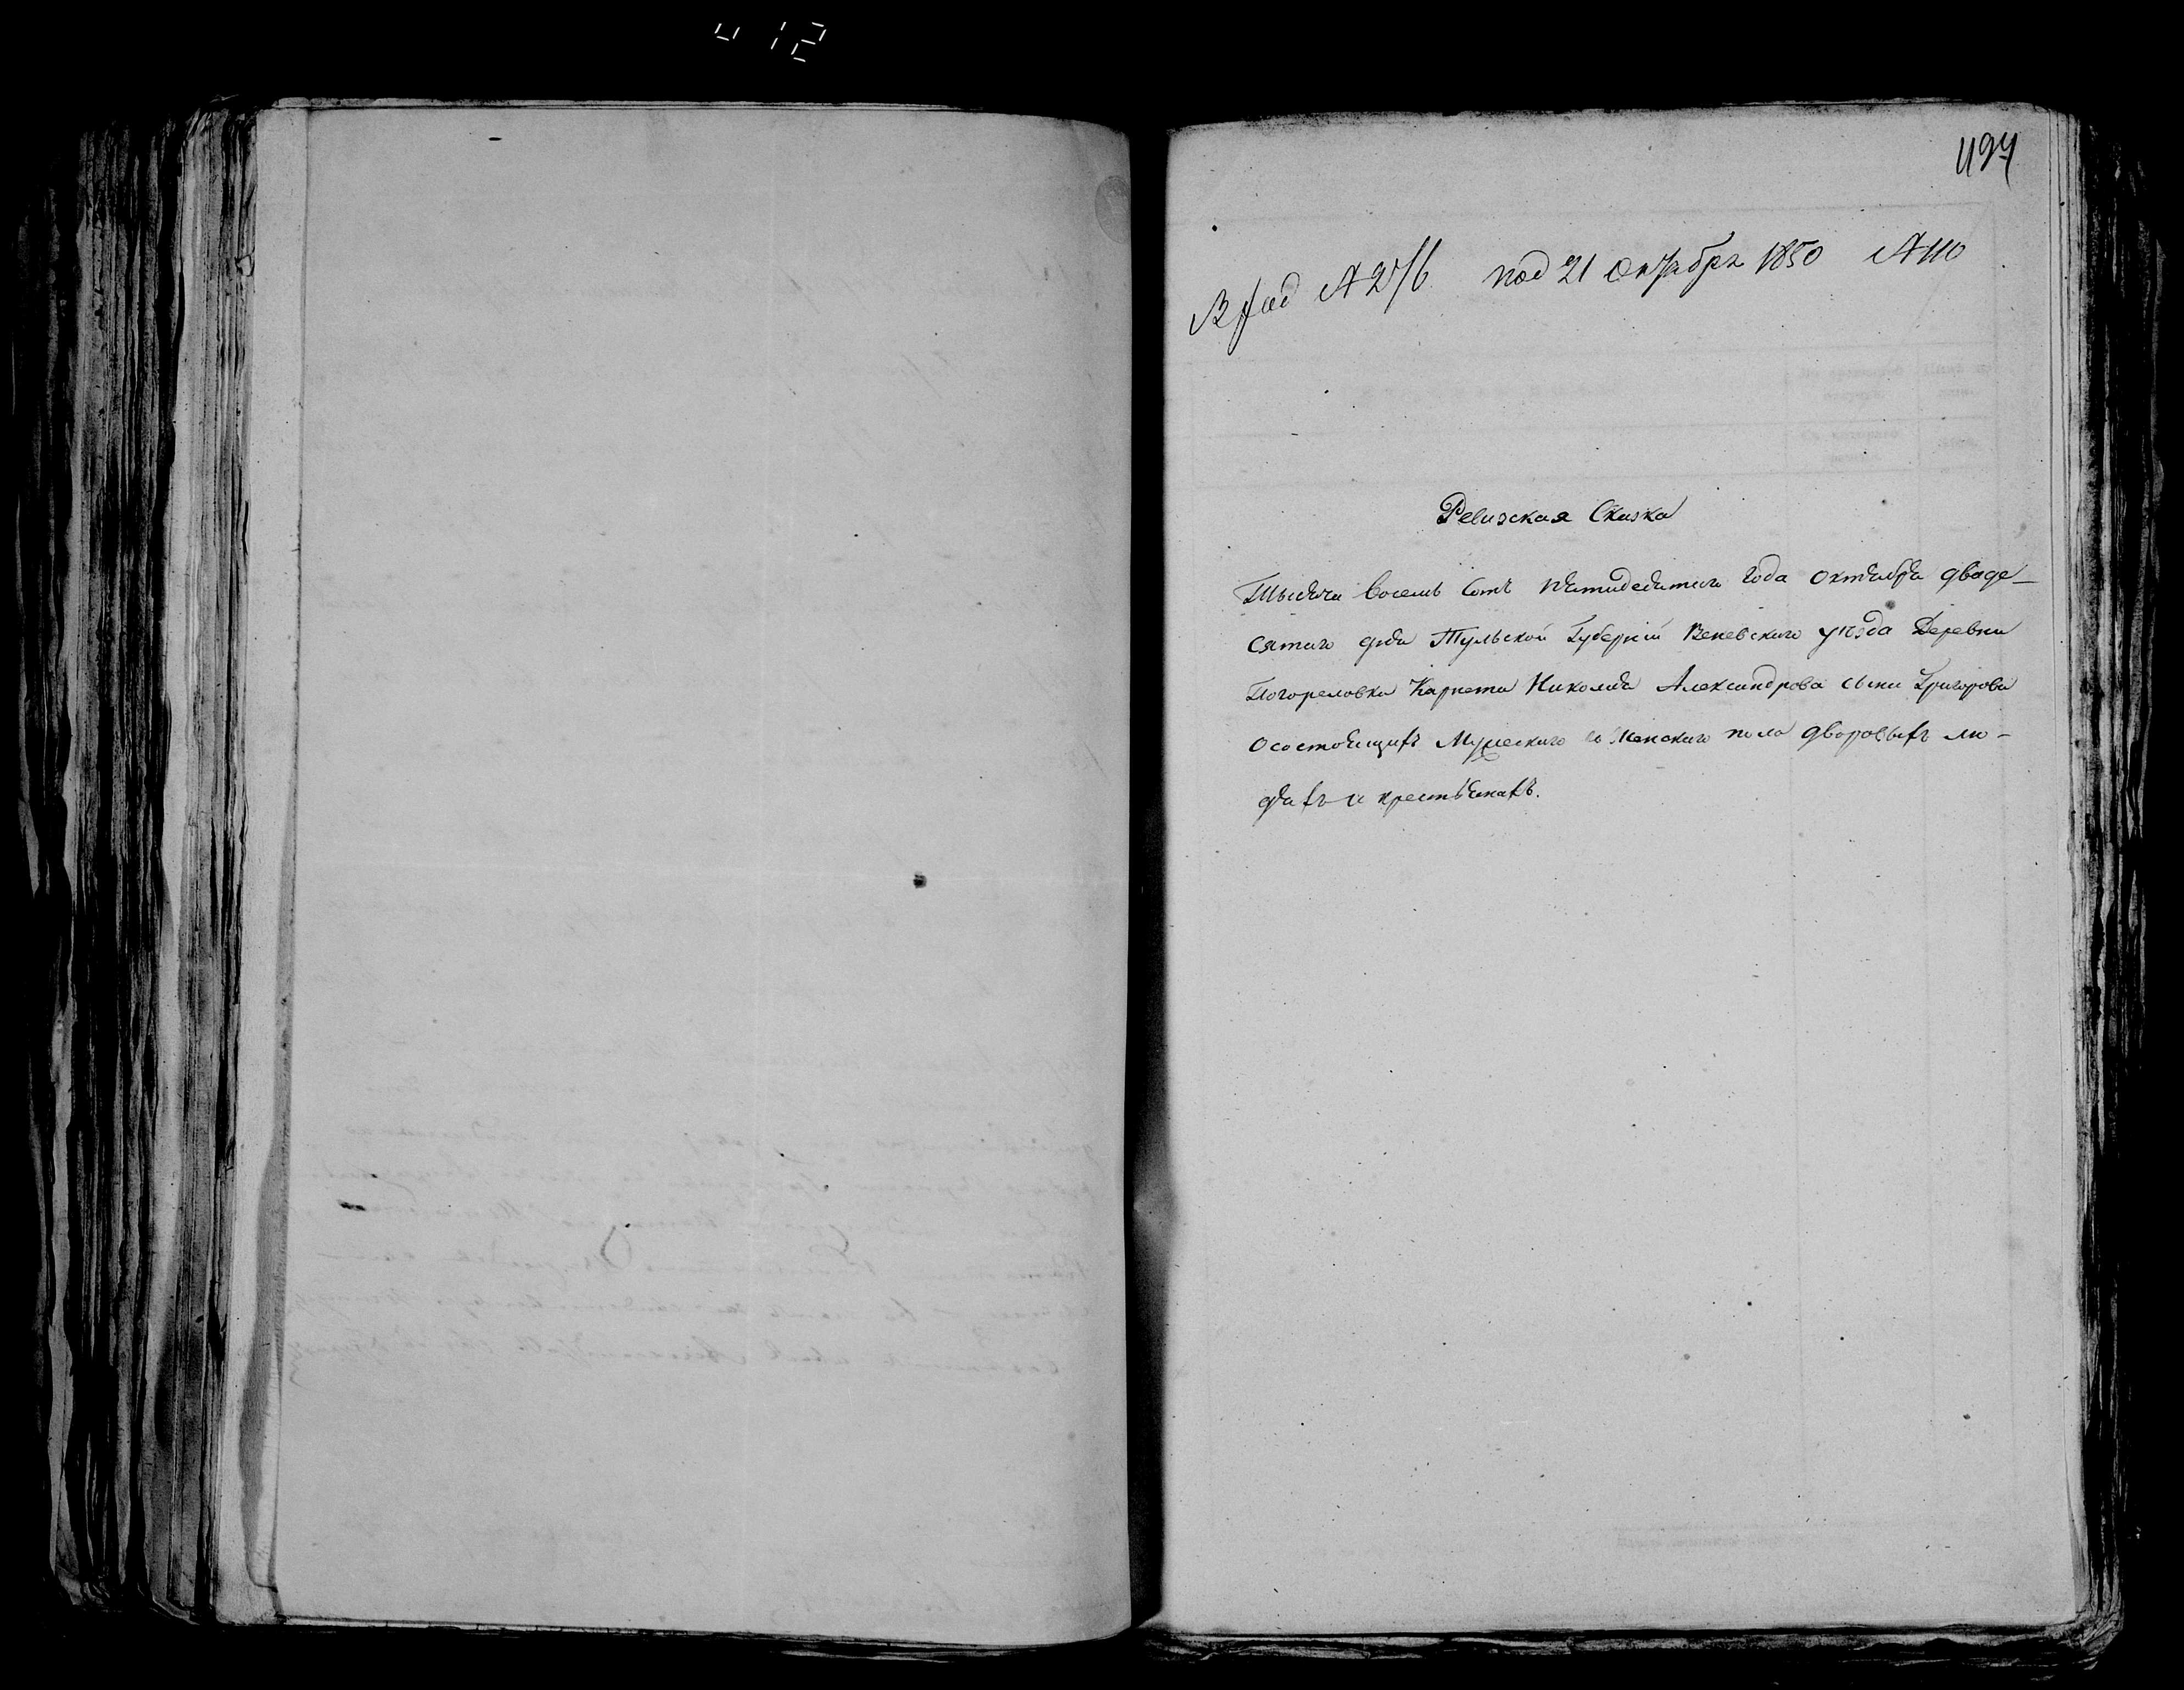 494
под 21 октября 1850 № 110
Ревизская Сказка
Тысяча восемь сотъ пятидесятаго года октября дваде-
сятаго дня Тульской Губерніи Веневскаго уѣзда Деревни
Погореловки Карнета Николая Александрова сына Григорова
о состоящихъ Мужескаго и Женскаго пола дворовыхъ лю-
дяхъ и крестьянахъ.